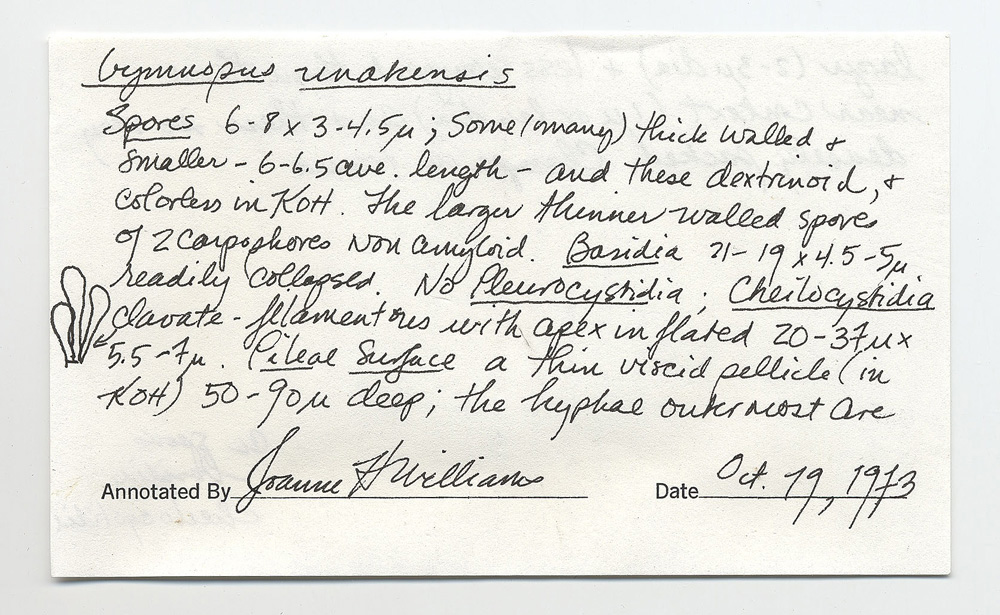 Gymnopus unakensis
Spores 6-8 x 3-4.5µ; Some (many) thick walled &
smaller - 6-6.5 ave. length - and these dextrinoid, &
colorless in KOH. The larger thinner walled spores
of 2 carpophores non amyloid. Basidia 21-19 x 4.5-5µ
readily collapsed. No Pleurocystidia. Cheilocystidia
clavate - filamentous with apex inflated 20-37µ x
5.5-7µ. Pileal Surface a thin viscid pellicle (in
KOH) 50-90µ deep; the hyphae outermost are
Annotated By Joanne H Williams Date Oct. 19, 1973